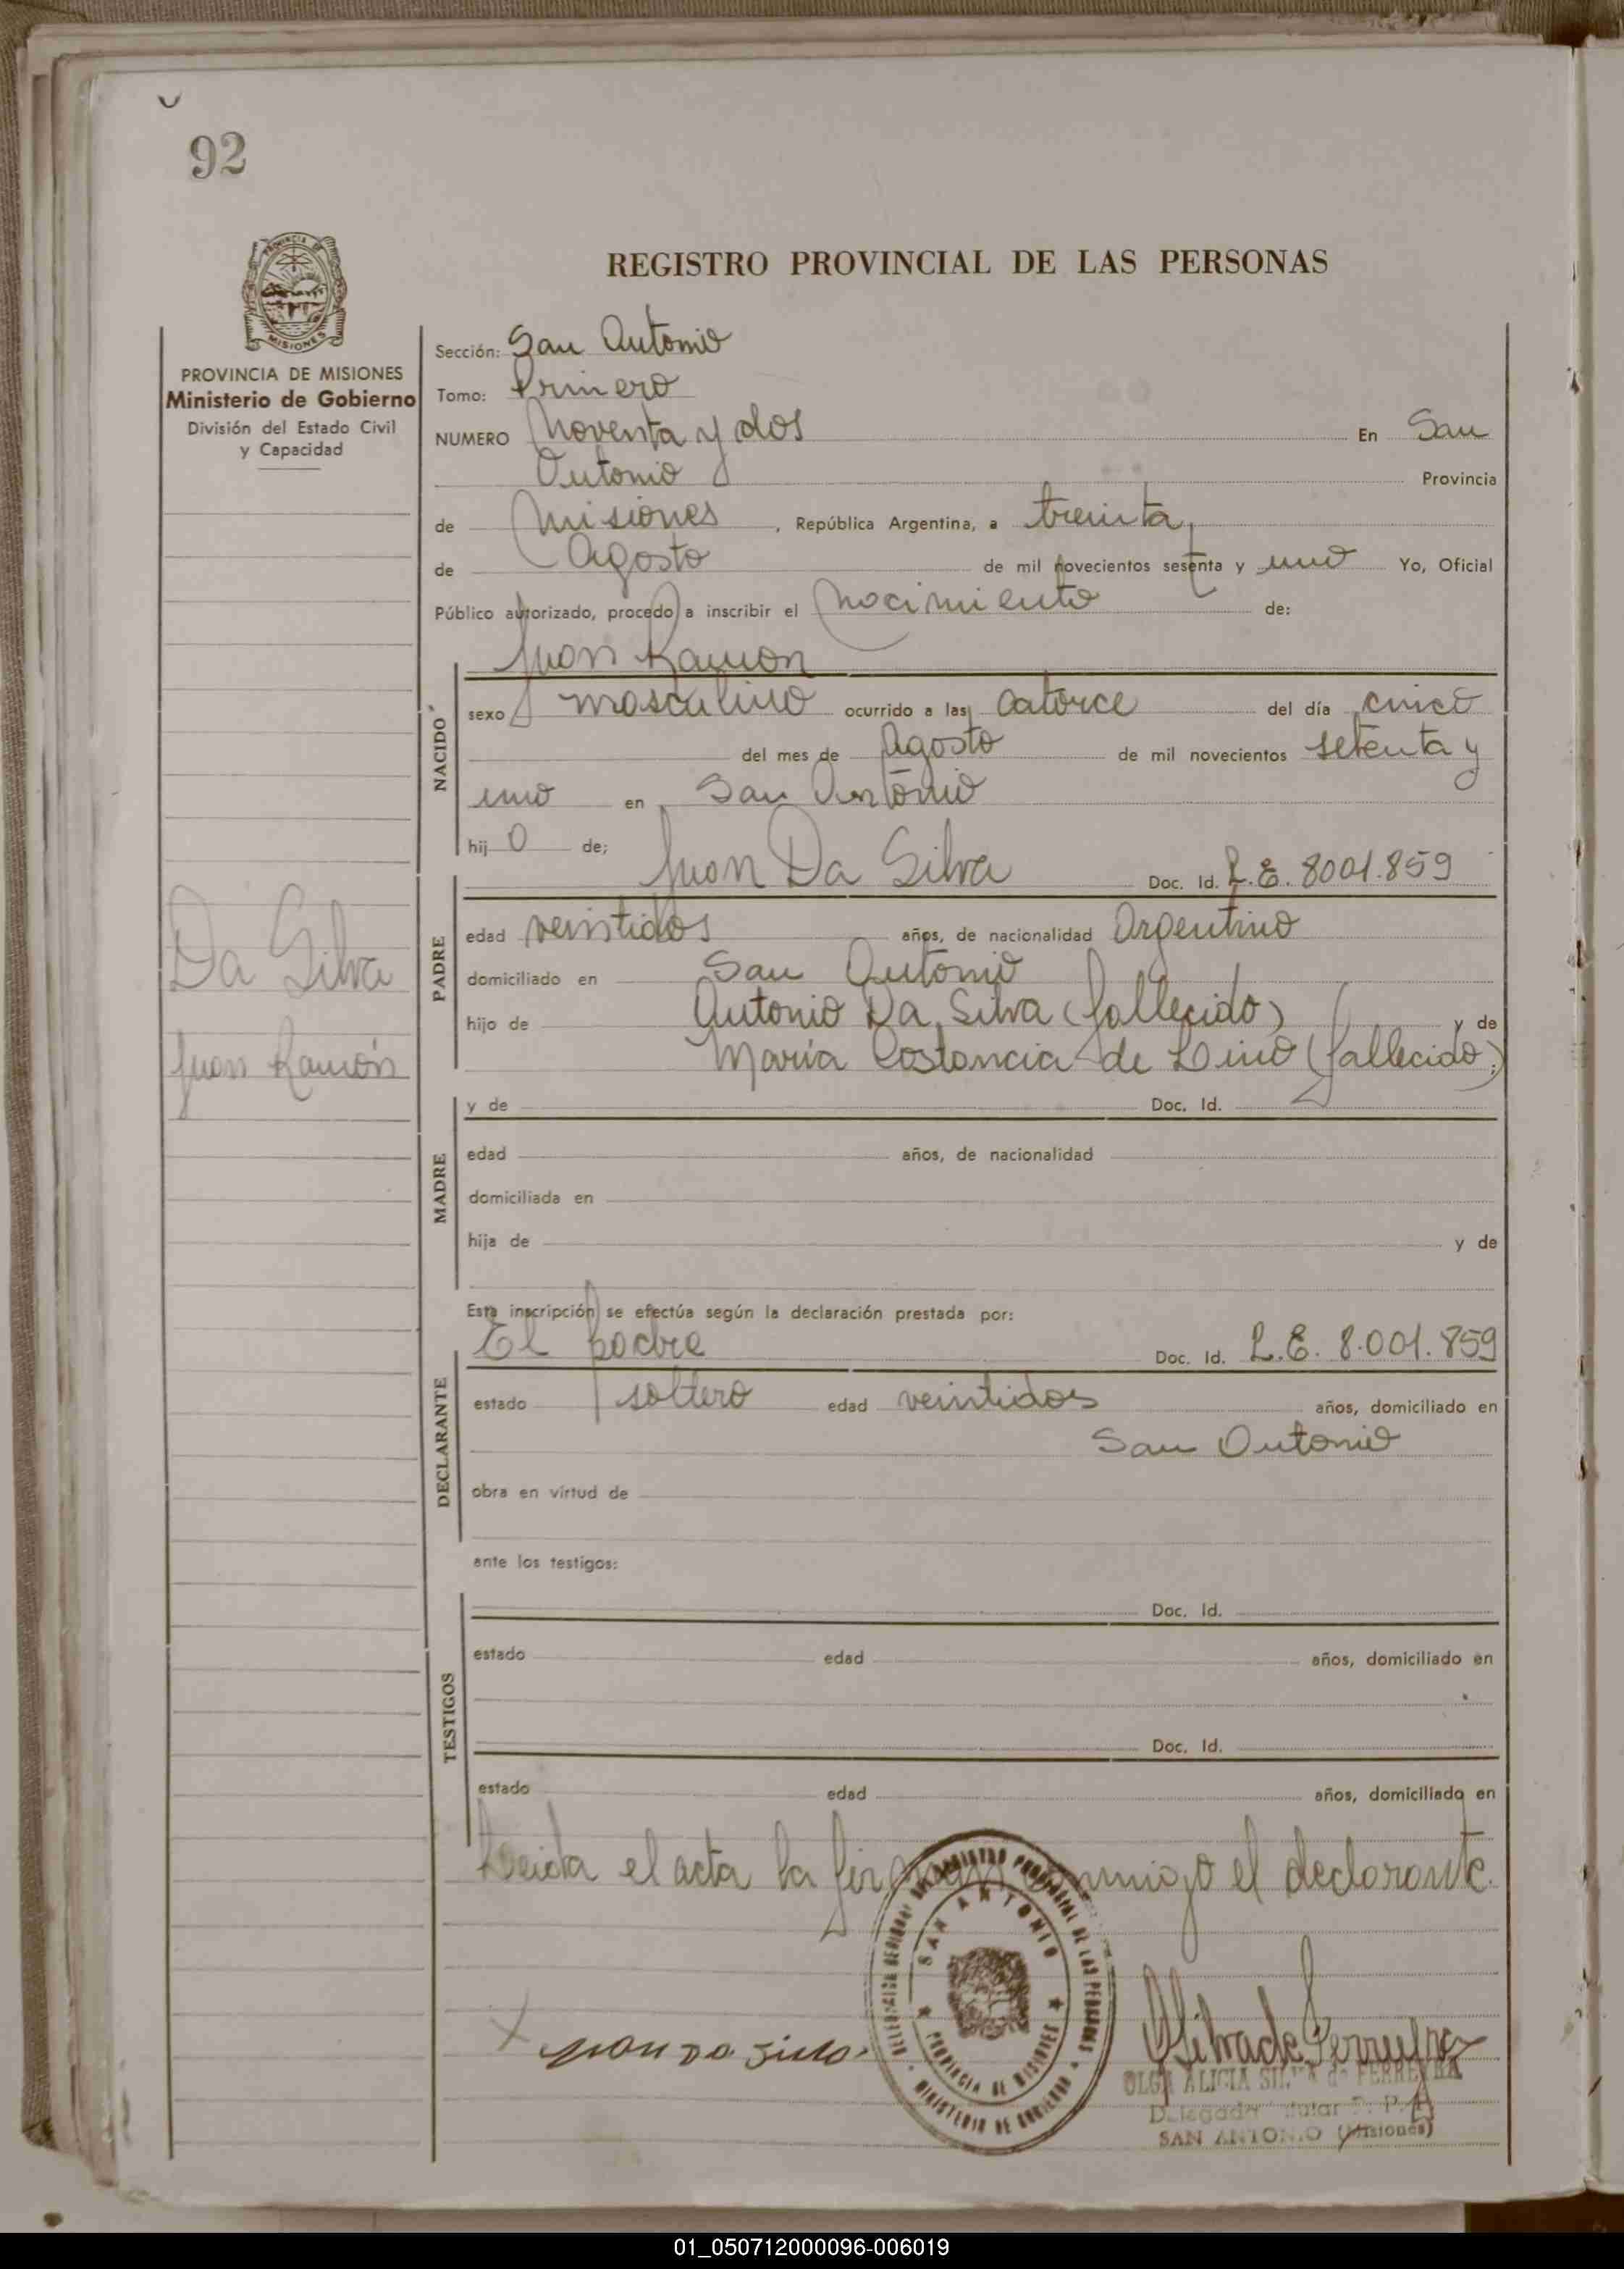 92
REGISTRO PROVINCIAL DE LAS PERSONAS
PROVINCIA DE MISIONES
Ministerio de Gobierno
División del Estado Civil
y Capacidad
Sección: San Antonio
Tomo: Primero
NUMERO Noventa y dos En San
Antonio Provincia
de Misiones, República Argentina, a treinta
de Agosto de mil novecientos sesenta y uno Yo, Oficial
Público autorizado, procedo a inscribir el nacimiento de:
Juan Ramon
NACIDO
sexo masculino ocurrido a las catorce del día cinco
del mes de Agosto de mil novecientos setenta y
uno en San Antonio
hijo de;
Juan Da Silva Doc. Id. L.E. 8001.859
PADRE
edad veintidos años, de nacionalidad Argentino
domiciliado en San Antonio
hijo de Antonio Da Silva (fallecido) y de
María Costancia de Lino (fallecido);
Da Silva
Juan Ramón
MADRE
y de Doc. Id.
edad años, de nacionalidad
domiciliada en
hija de y de
Esta inscripción se efectúa según la declaración prestada por:
El padre Doc. Id. L.E. 8.001.859
DECLARANTE
estado soltero edad veintidos años, domiciliado en
San Antonio
obra en virtud de
ante los testigos:
TESTIGOS
Doc. Id.
estado edad años, domiciliado en
Doc. Id.
estado edad años, domiciliado en
Leida el acta la firman conmigo el declarante.
REGISTRO PROVINCIAL DE LAS PERSONAS
SAN ANTONIO
PROVINCIA DE MISIONES
MINISTERIO DE GOBIERNO
Juan Da Silva
OLGA ALICIA SILVA de FERREYRA
SAN ANTONIO (Misiones)
01_050712000096-006019